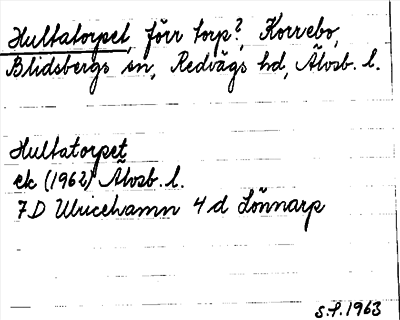 Hultatorpet, förr torp?, Korrebo,
Blidsbergs sn, Redvägs hd, Älvsb. l.
Hultatorpet
ek (1962) Älvsb. l.
7D Ulricehamn 4 d Lönnarp
S.F. 1963